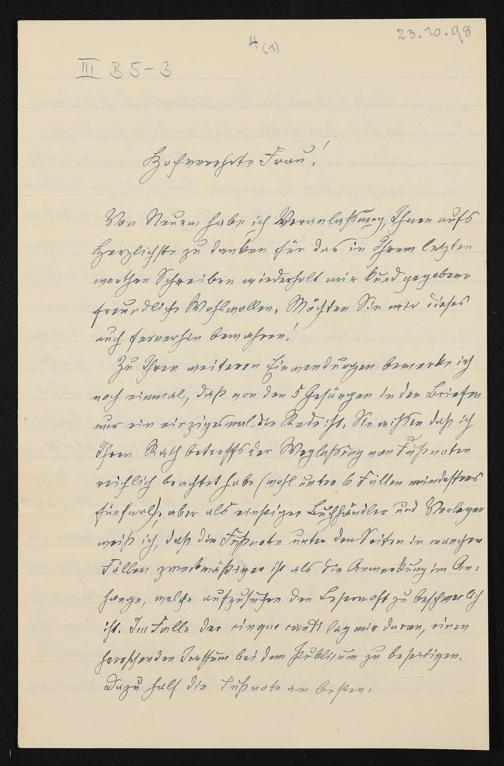 4 (1)
23.10.98
III B 5-3
Hochverehrte Frau!
Von Neuem habe ich Veranlassung, Ihnen aufs
Herzlichste zu danken für das in Ihrem letzten
werthen Schreiben wiederholt mir kund gegebene
freundliche Wohlwollen. Möchten Sie mir dieses
auch fernerhin bewahren!
Zu Ihren weiteren Einwendungen bemerke ich
noch einmal, daß von den 5 Gesängen in den Briefen
nur ein einzigesmal die Rede ist. Sie wissen daß ich
Ihren Rath betreffs der Weglassung von Fußnoten
reichlich beachtet habe (wohl unter 6 Fällen mindestens
fünfmal); aber als einstiger Buchhändler und Verleger
weiß ich, daß die Fußnote unter den Seiten in manchen
Fällen zweckmäßiger ist als die Anmerkung im An-
hange, welche aufzusuchen den Lesern oft zu beschwerlich
ist. Im Falle der cinque canti lag mir daran, einen
herrschenden Irrthum bei dem Publicum zu beseitigen.
Dazu half die Fußnote am besten.